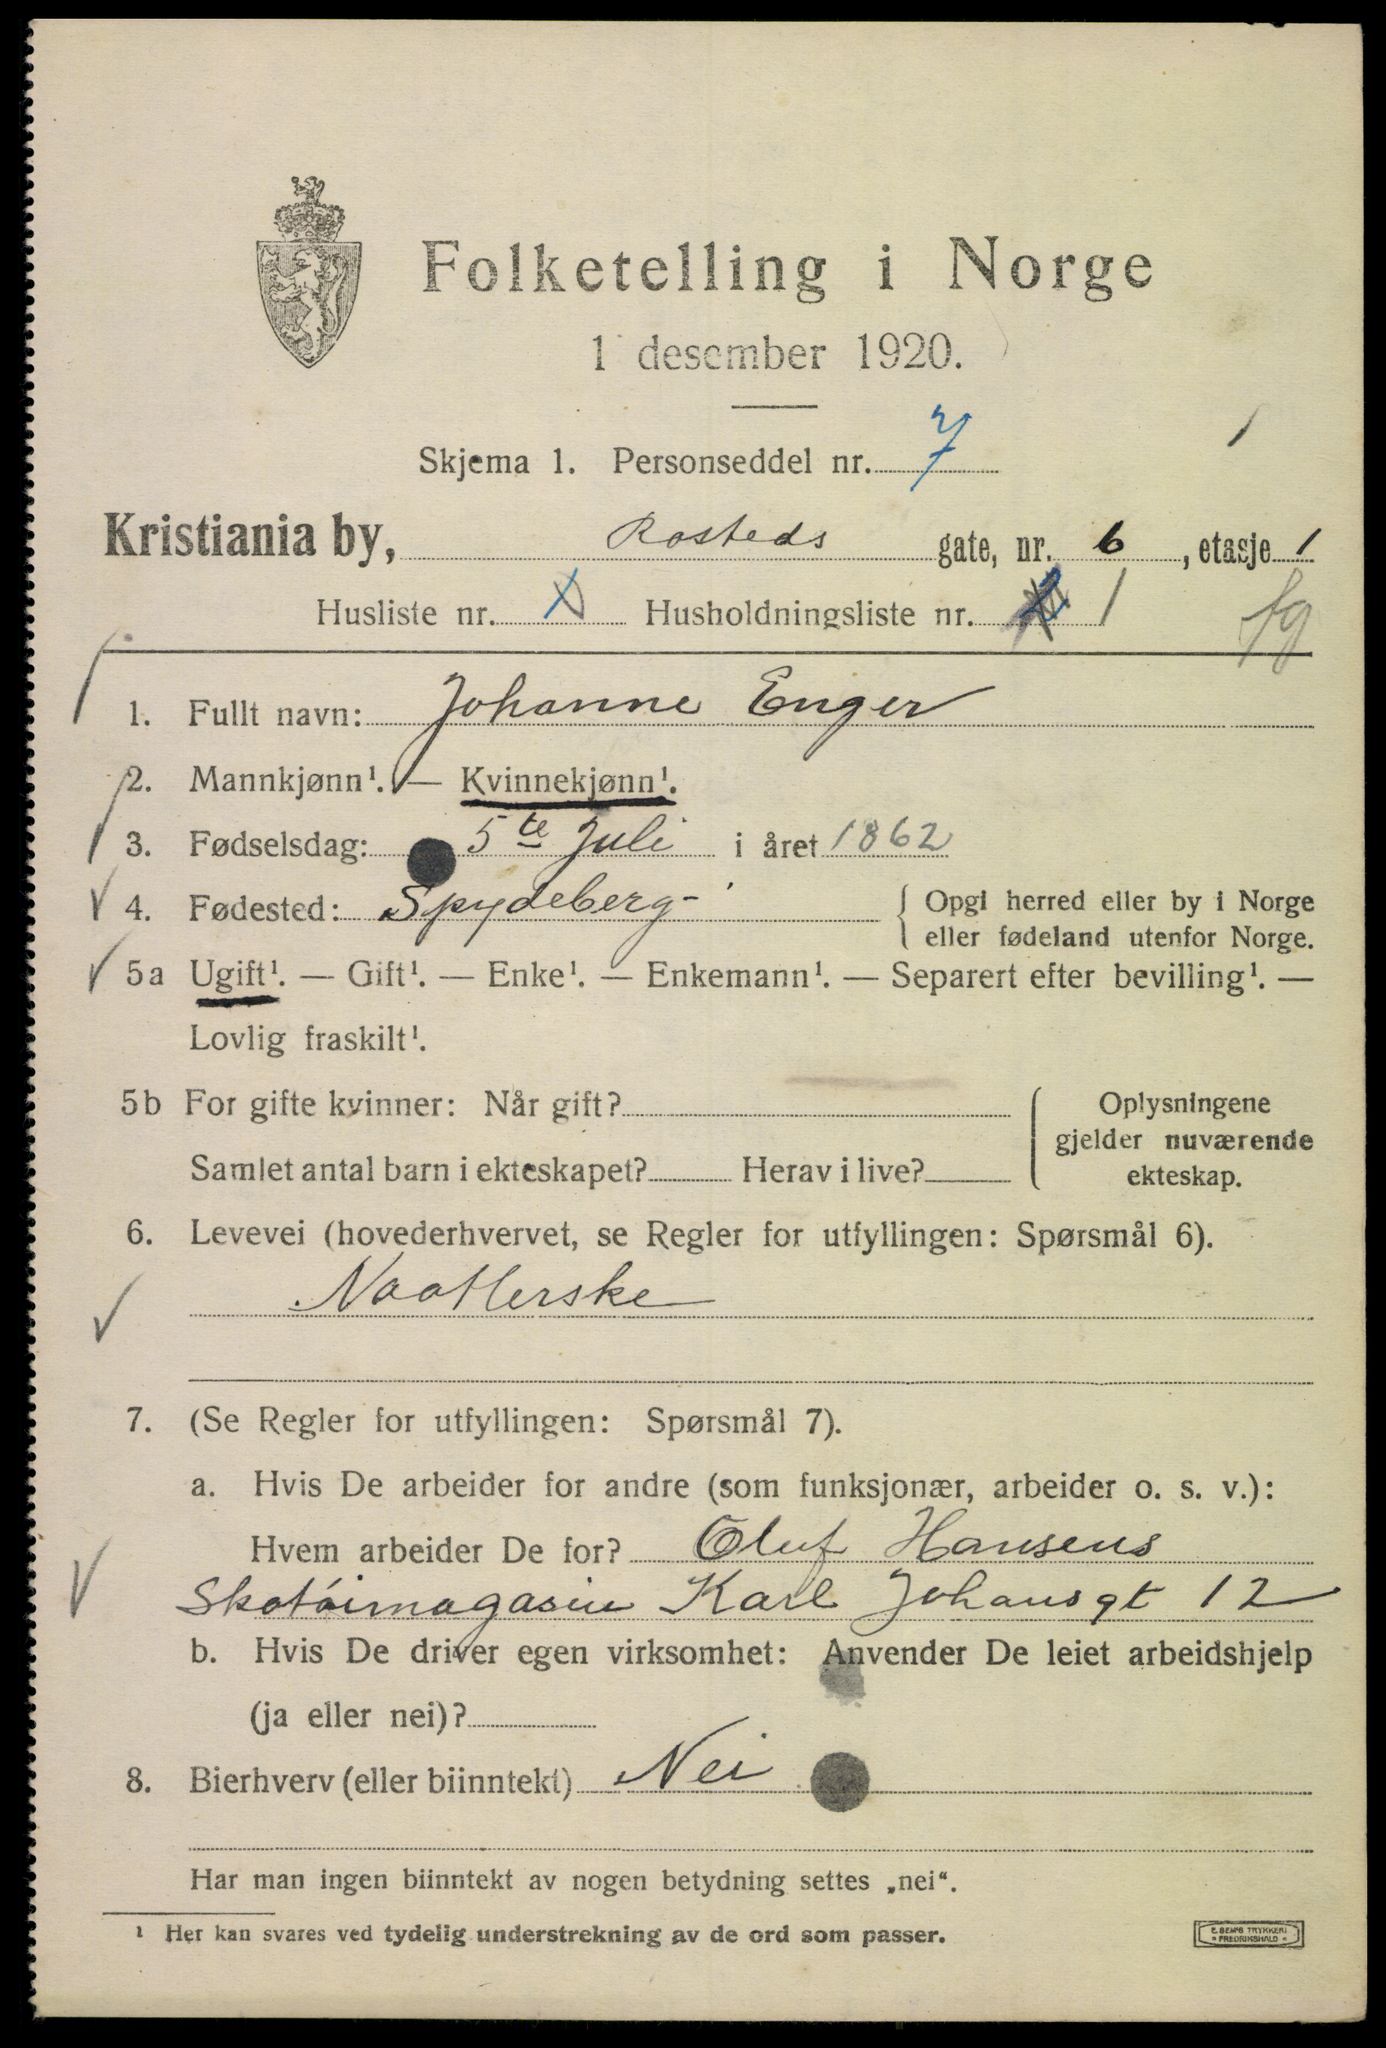 Folketelling i Norge
1 desember 1920.
Skjema 1. Personseddel nr. 7
Kristiania by, Rosteds gate, nr. 6, etasje 1
Husliste nr. Husholdningsliste nr. 1
1. Fullt navn: Johanne Enger
2. Mannkjønn¹. — Kvinnekjønn¹.
3. Fødselsdag: 5te Juli i året 1862
4. Fødested: Spydeberg { Opgi herred eller by i Norge
eller fødeland utenfor Norge.
5a Ugift¹. — Gift¹. — Enke¹. — Enkemann¹. — Separert efter bevilling¹. —
Lovlig fraskilt¹.
5b For gifte kvinner: Når gift? Oplysningene
gjelder nuværende
Samlet antal barn i ekteskapet? Herav i live? ekteskap.
6. Levevei (hovederhvervet, se Regler for utfyllingen: Spørsmål 6).
Naatlerske
7. (Se Regler for utfyllingen: Spørsmål 7).
a. Hvis De arbeider for andre (som funksjonær, arbeider o. s. v.):
Hvem arbeider De for? Oluf Hansens
Skotøimagasin Karl Johansgt 12
b. Hvis De driver egen virksomhet: Anvender De leiet arbeidshjelp
(ja eller nei)?
8. Bierhverv (eller biinntekt) Nei
Har man ingen biinntekt av nogen betydning settes „nei“.
¹ Her kan svares ved tydelig understrekning av de ord som passer.
E. SEM'S TRYKKERI
FREDRIKSHALD